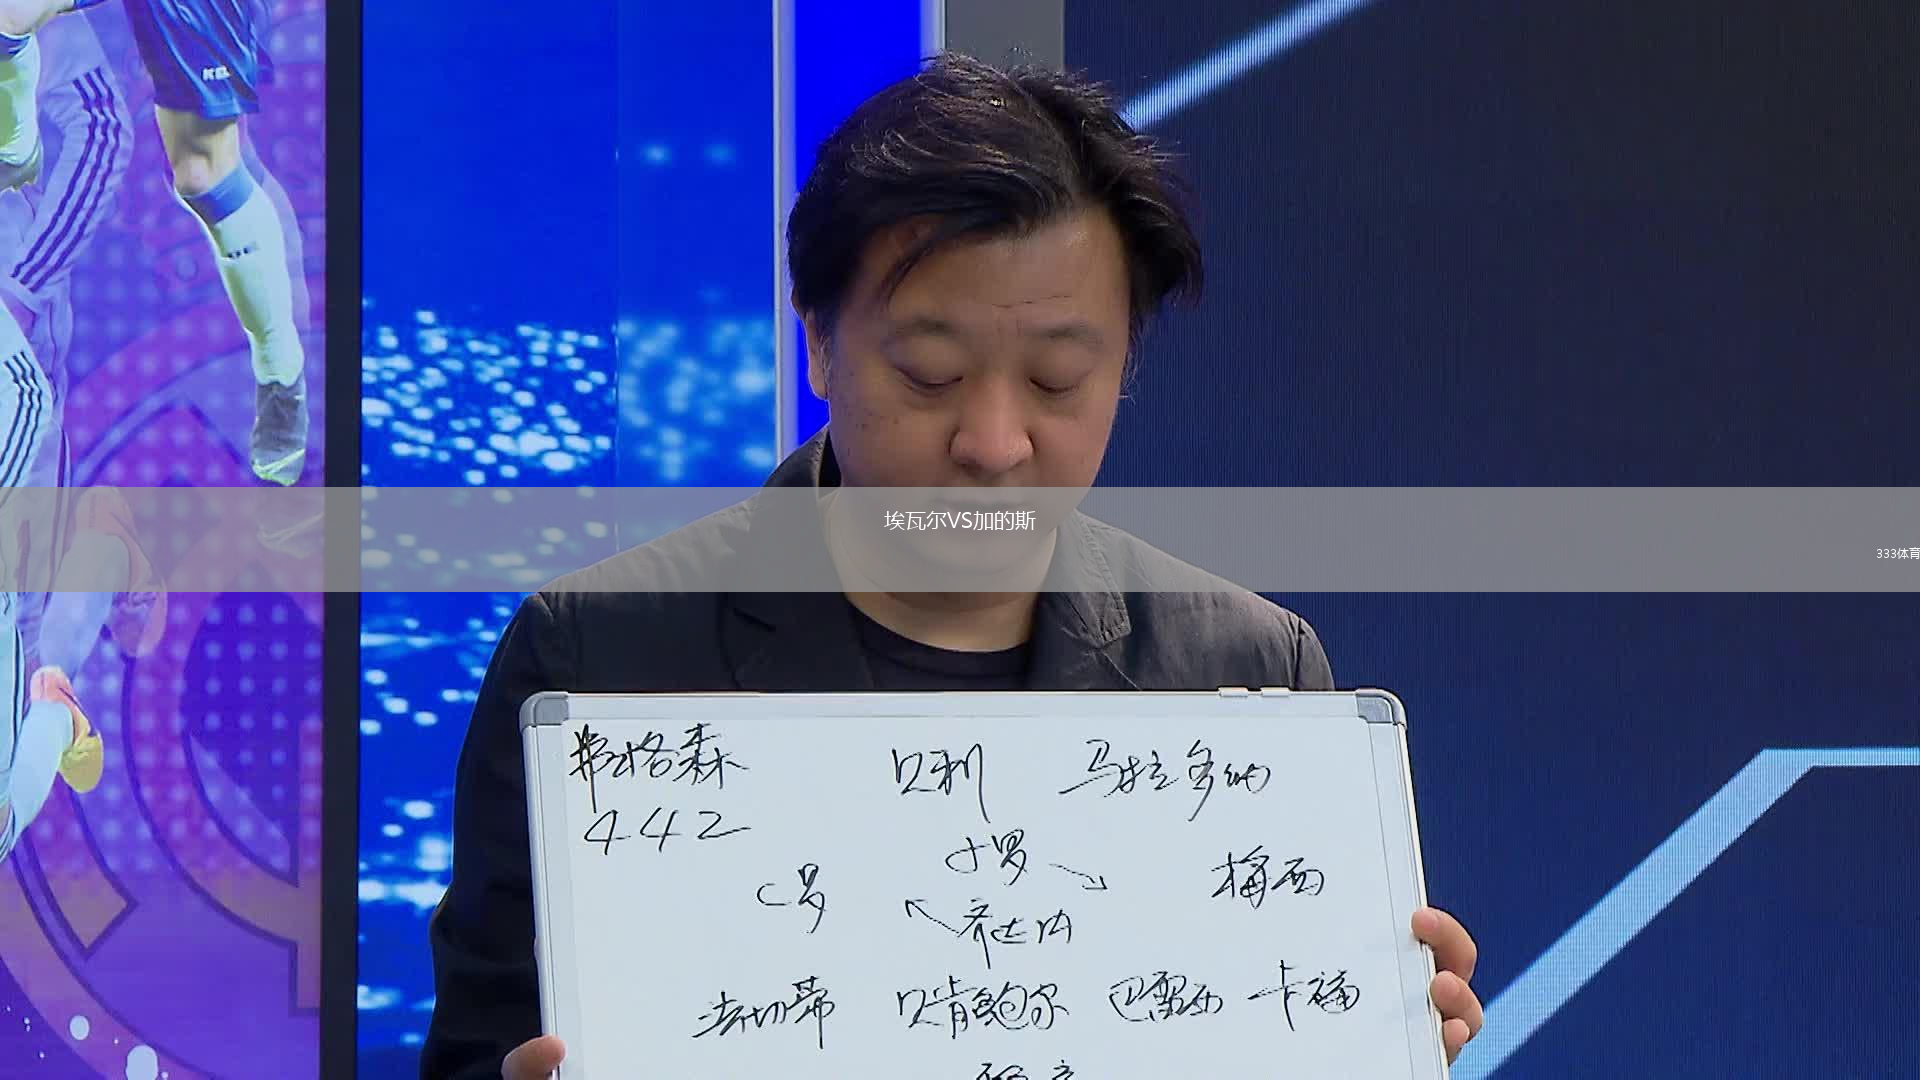 埃瓦尔VS加的斯
333体育
弗格森 贝利 马拉多纳
442
小罗
C罗 梅西
齐达内
法切蒂 贝肯鲍尔 巴雷西 卡福